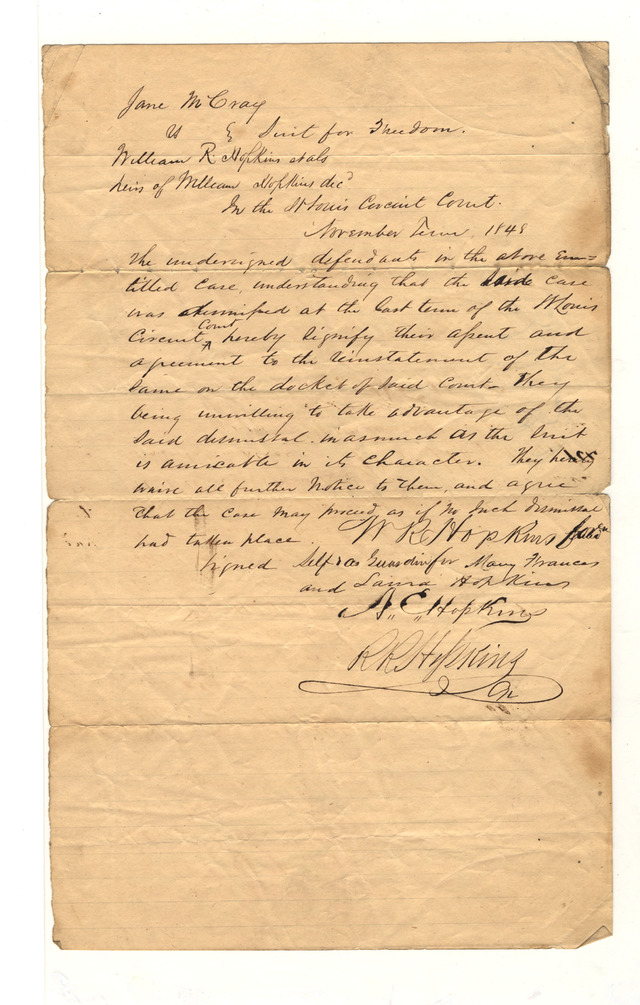 Jane McCray
vs } Suit for Freedom.
William R. Hopkins et als
heirs of William Hopkins decd
In the St Louis Circuit Court.
November Term, 1848
The undersigned defendants in the above en=
titled case, understanding that the case
was dismissed at the last term of the St Louis
Circuit Court hereby signify their assent and
agreement to the reinstatement of the
same on the docket of said Court. They
being unwilling to take advantage of the
said dismissal. inasmuch as the Suit
is amicable in its character. They hereby
waive all further notice to them, and agree
that the case may proceed, as if no such dismissal
had taken place. W R Hopkins for
Signed Self & as Guardian for Mary Frances
and Laura Hopkins
A. E. Hopkins
R R Hopkins